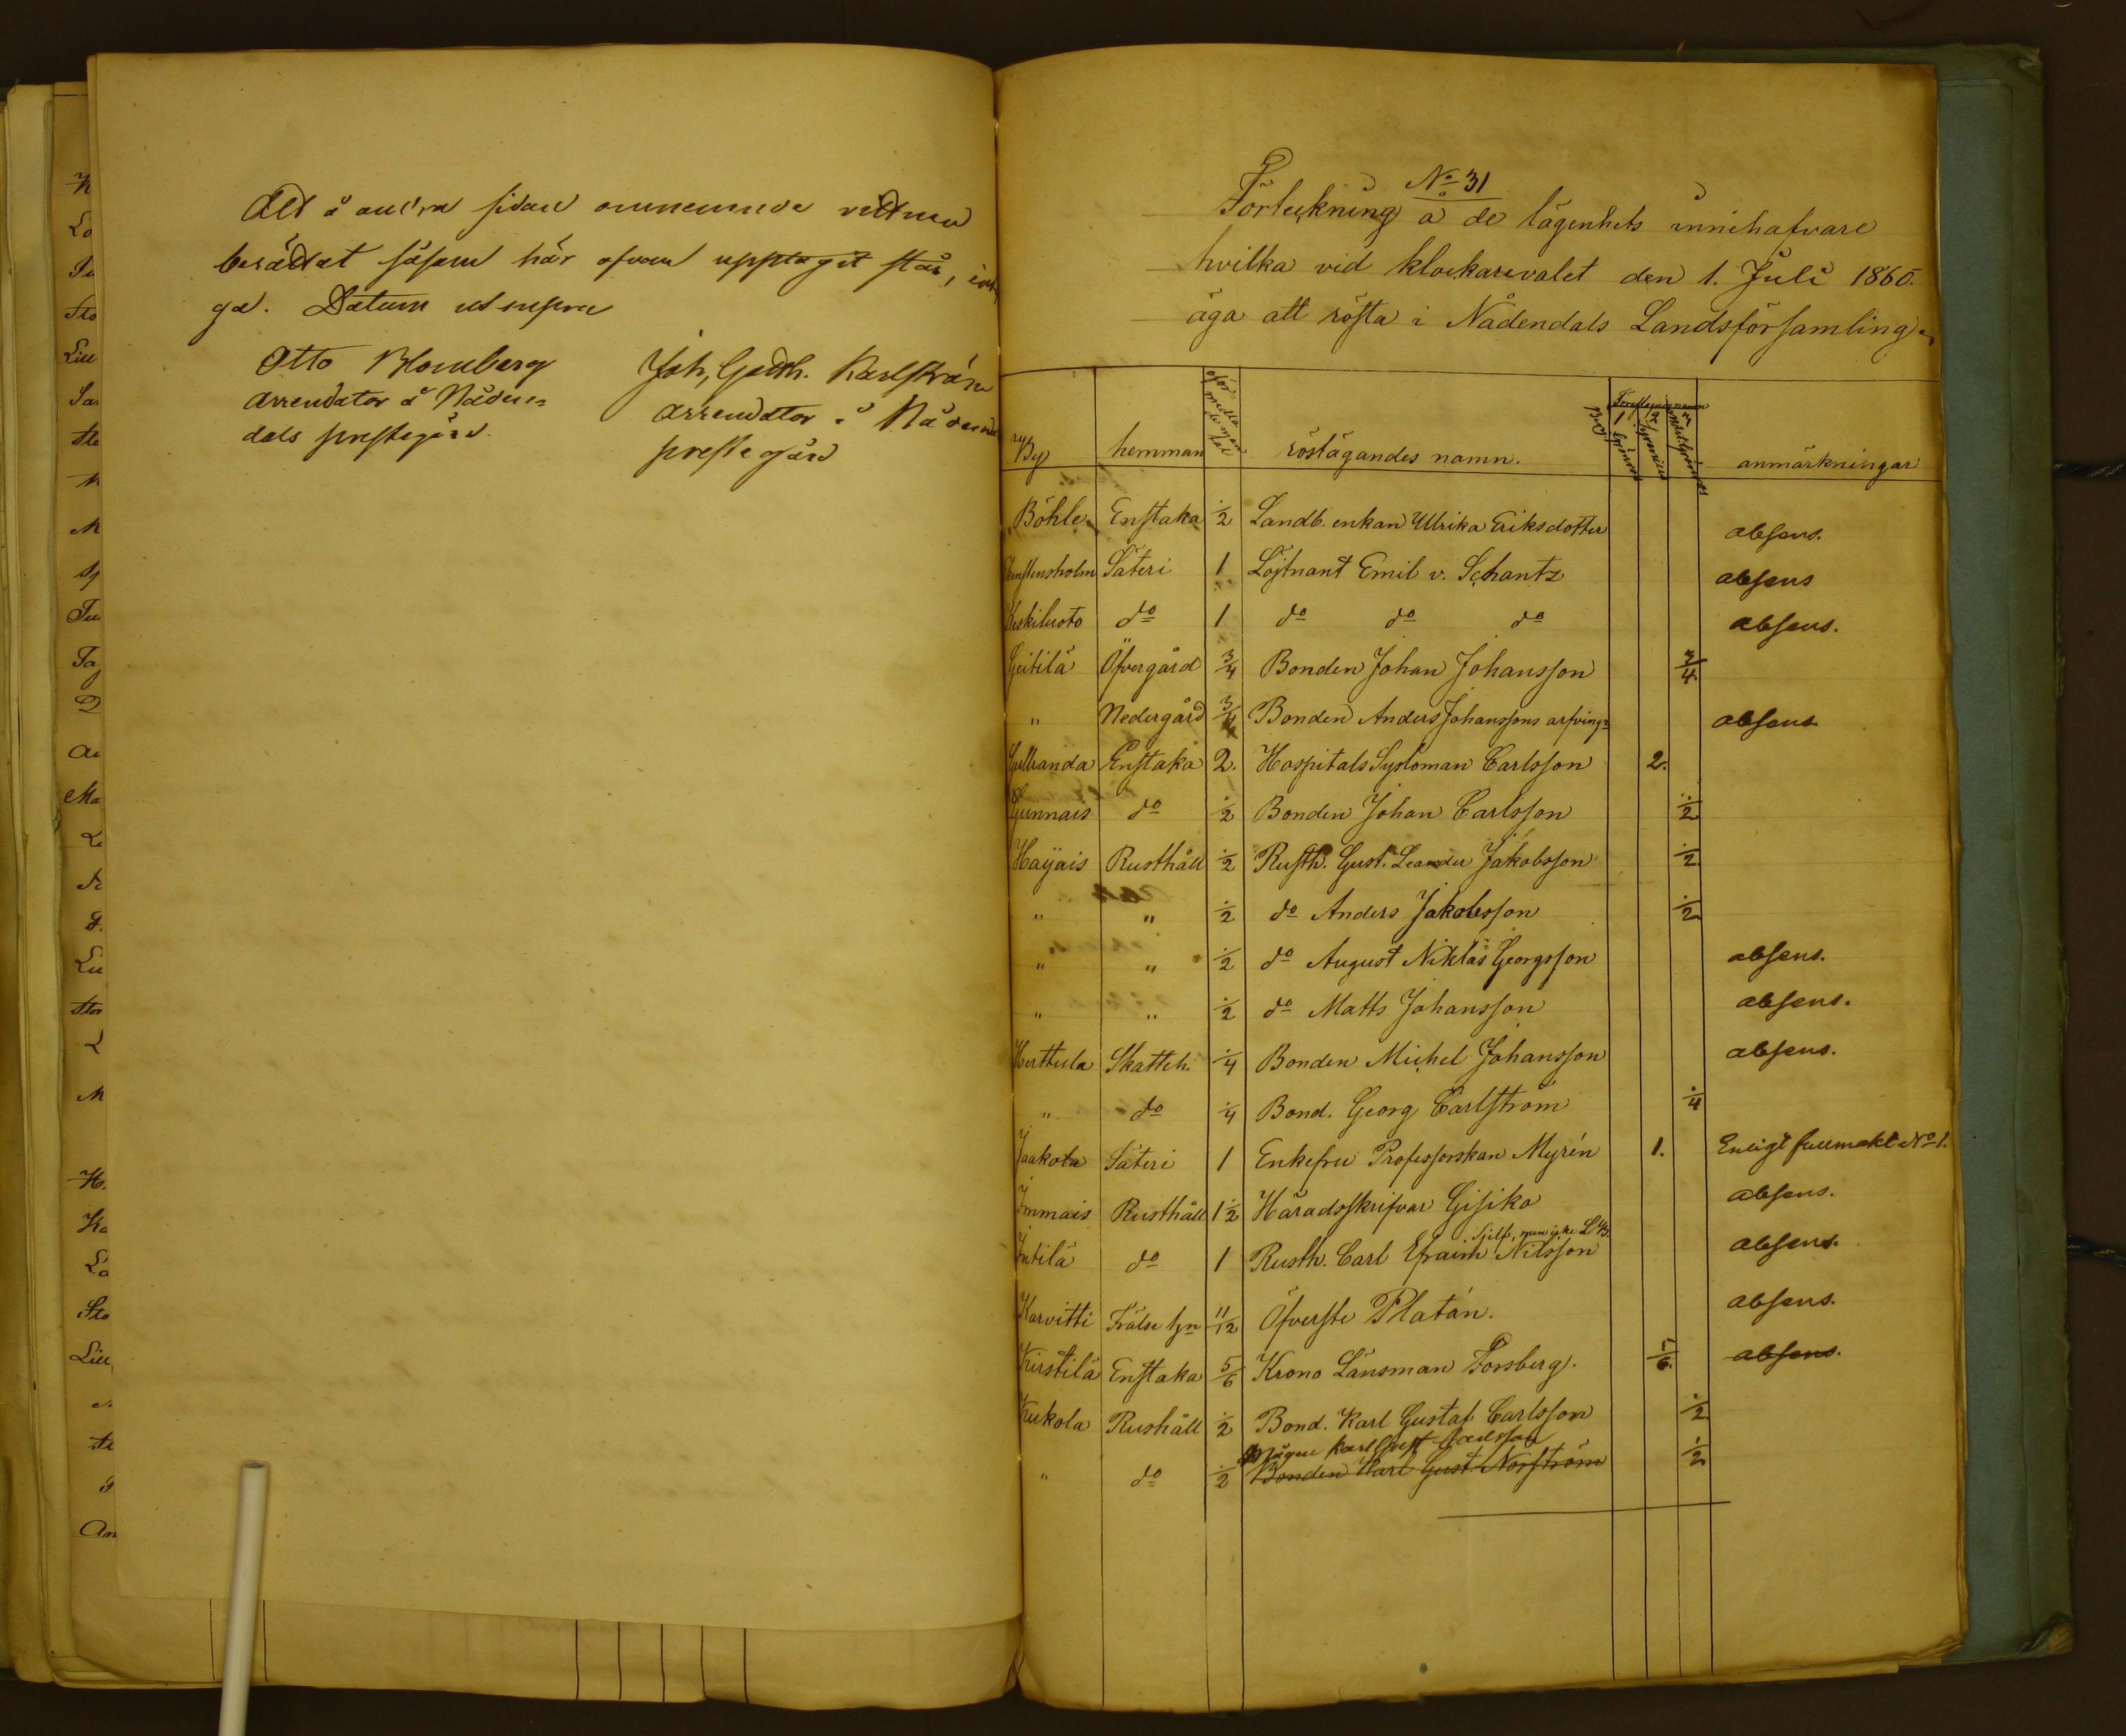 Att å andra sidan omnemnde vedtmen
berädtat såsom här ofvan upptagit står,
ga. Datum ut supra
Otto Blomberg
Arrendator å Nåden=
dals prestegård.
Joh, Gotth. Karlström
Arrendator å Nådend
prestegård
No 31
Förteckning å de lägenhets innehafvare
hvilka vid klockarevalet den 1. Juli 1860.
äga att rösta i Nådendals Landsförsamling.
By hemman röstägandes namn. anmärkningar
Böhle Enstaka ½ Landb. enkan Ulrika Eriksdotter absens.
Säteri 1 Löjtnant Emil v. Schantz absens
Keskiluoto do 1 do do do absens.
Geitilä Öfvergård 3/4 Bonden Johan Johansson 3/4
" Nedergård 3/4 Bonden Anders Johanssons arfving= absens
Gullranda Enstaka 2. Hospitals Sysloman Carlsson 2.
Gunnais do ½ Bonden Johan Carlsson ½
Haijais Rusthåll ½ Rusth. Gust. Leander Jakobsson ½
" " ½ do Anders Jakobsson ½
" " ½ do August Niklas Georgsson absens.
" " ½ do Matts Johansson absens.
Herttula Skatteh. ¼ Bonden Michel Johansson absens.
" do ¼ Bond. Georg Carlström ¼
Jaakola Säteri 1 Enkefru Professorskan Myrén 1. Enligt fullmakt No 1.
Immais Rusthåll 1½ Häradsskrifvar Gisiko absens.
Sjelf, men icke
Intilä do 1 Rusth. Carl Efraim Nilsson absens.
Karvitti Frälse 11/12 Öfverste Platán. absens.
Kirstilä Enstaka 5/6 Krono Länsman Forsberg. 5/6 absens.
Kukola Rushåll ½ Bond. Karl Gustaf Carlsson ½
Mågen Karl Gust Carlsson
" do ½ Bonden Karl Gust Norström ½